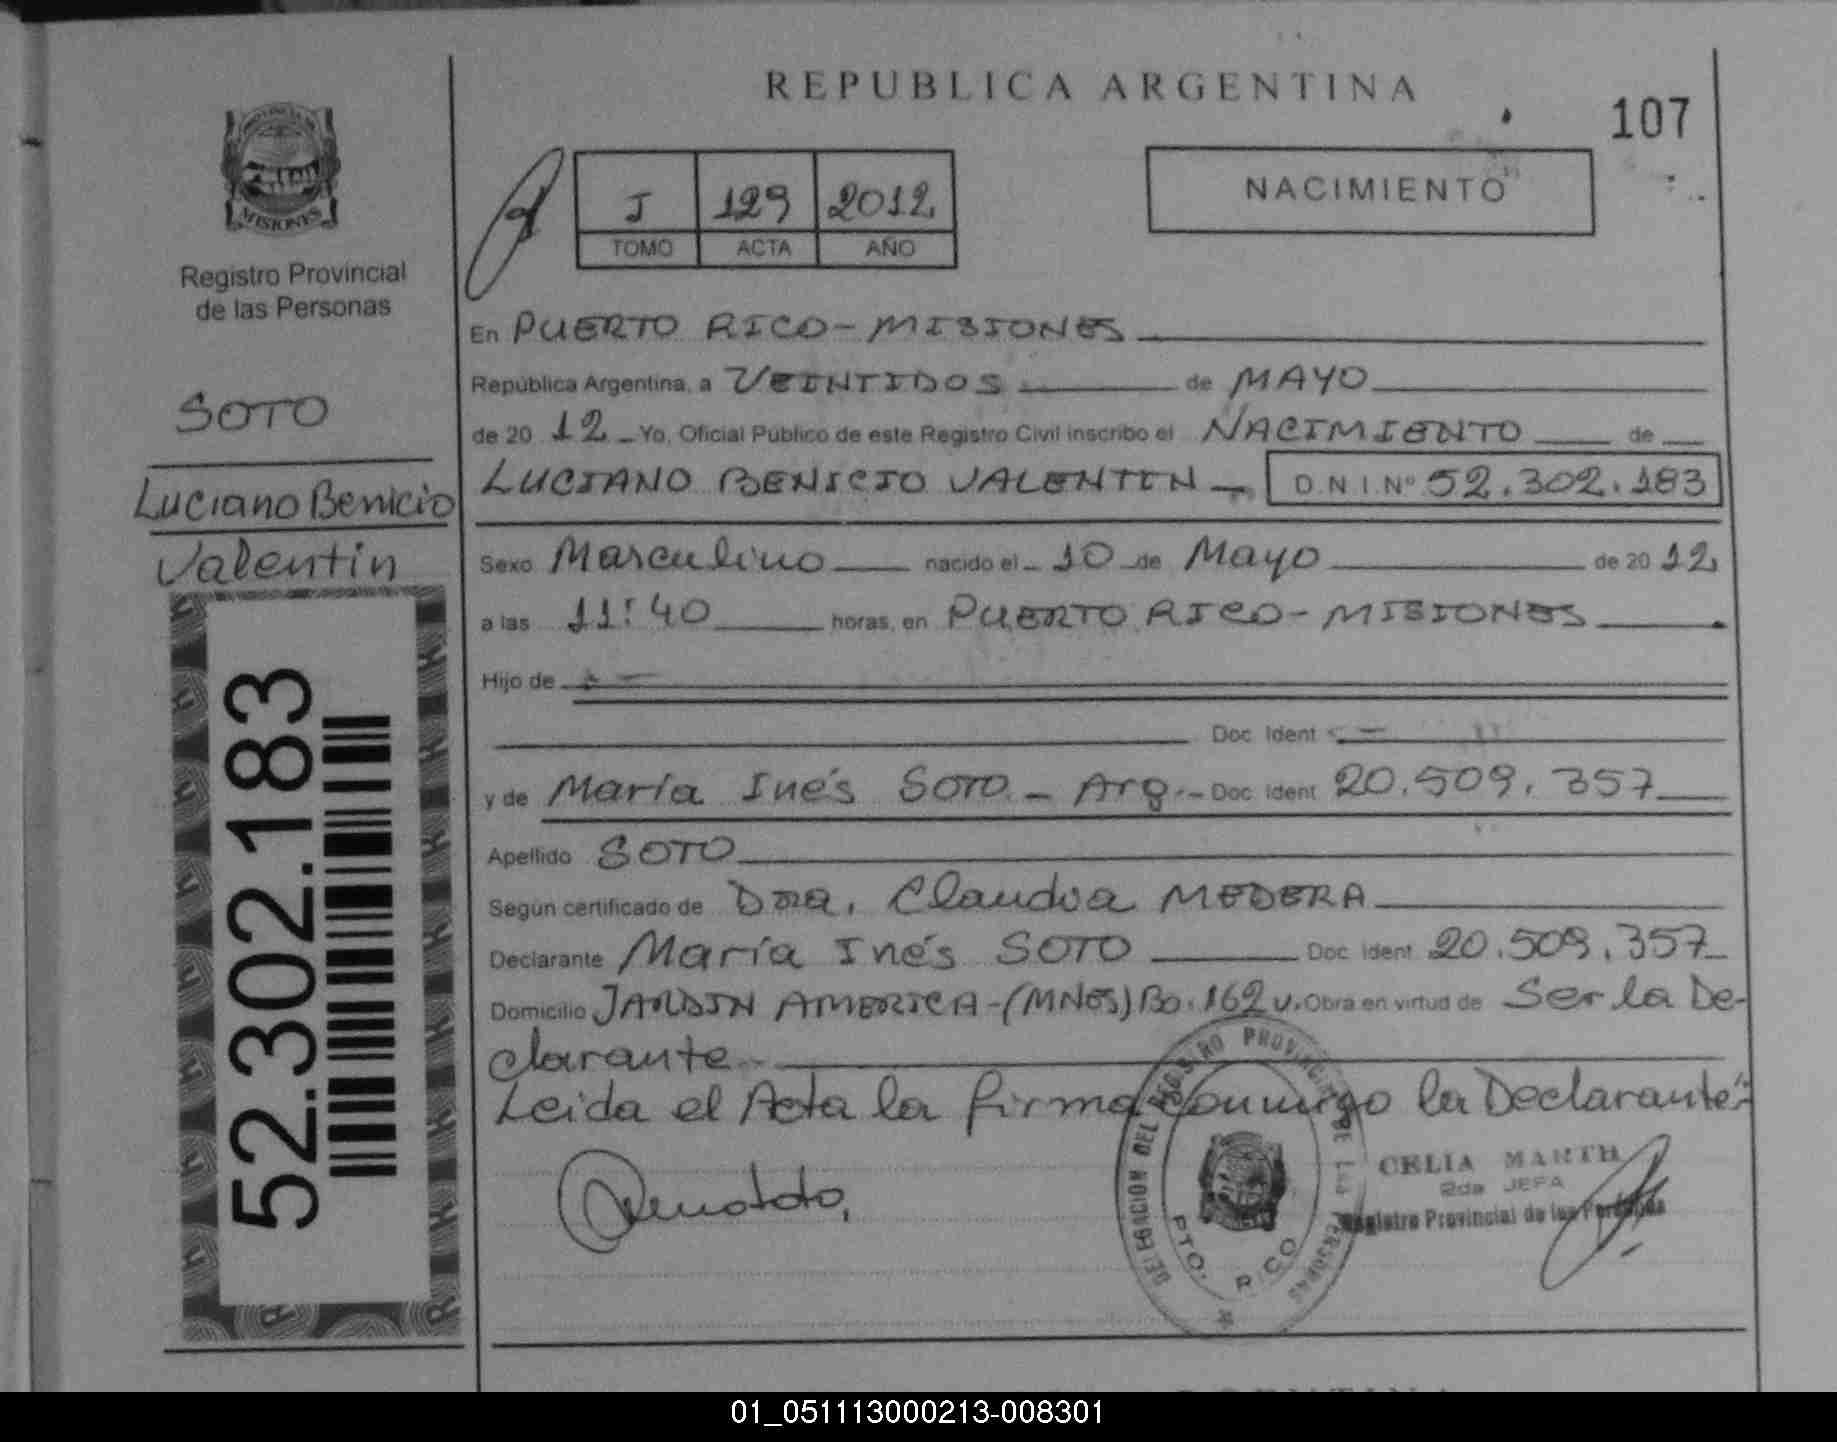 REPUBLICA ARGENTINA
107
PROVINCIA DE
MISIONES
Registro Provincial
de las Personas
I 129 2012
TOMO ACTA AÑO
NACIMIENTO
SOTO
Luciano Benicio
Valentín
52.302.183
En PUERTO RICO-MISIONES
República Argentina, a VEINTIDOS de MAYO
de 20 12 Yo, Oficial Público de este Registro Civil inscribo el NACIMIENTO de
LUCIANO BENICIO VALENTIN D.N.I.Nº 52.302.183
Sexo Masculino nacido el 10 de Mayo de 20 12
a las 11:40 horas, en PUERTO RICO-MISIONES
Hijo de
Doc Ident
y de María Inés SOTO - Arg.- Doc Ident 20.509.357
Apellido SOTO
Según certificado de Dra. Claudia MEDERA
Declarante María Inés SOTO Doc Ident 20.509.357
Domicilio JARDIN AMERICA-(MNES) Bo. 162 v. Obra en virtud de Ser la De-
clarante
Leida el Acta la firma conmigo la Declarante.-
DELEGACION DEL REGISTRO PROVINCIAL DE LAS PERSONAS
PTO. RICO
CELIA MARTH
2da JEFA
Registro Provincial de las Personas
01_051113000213-008301